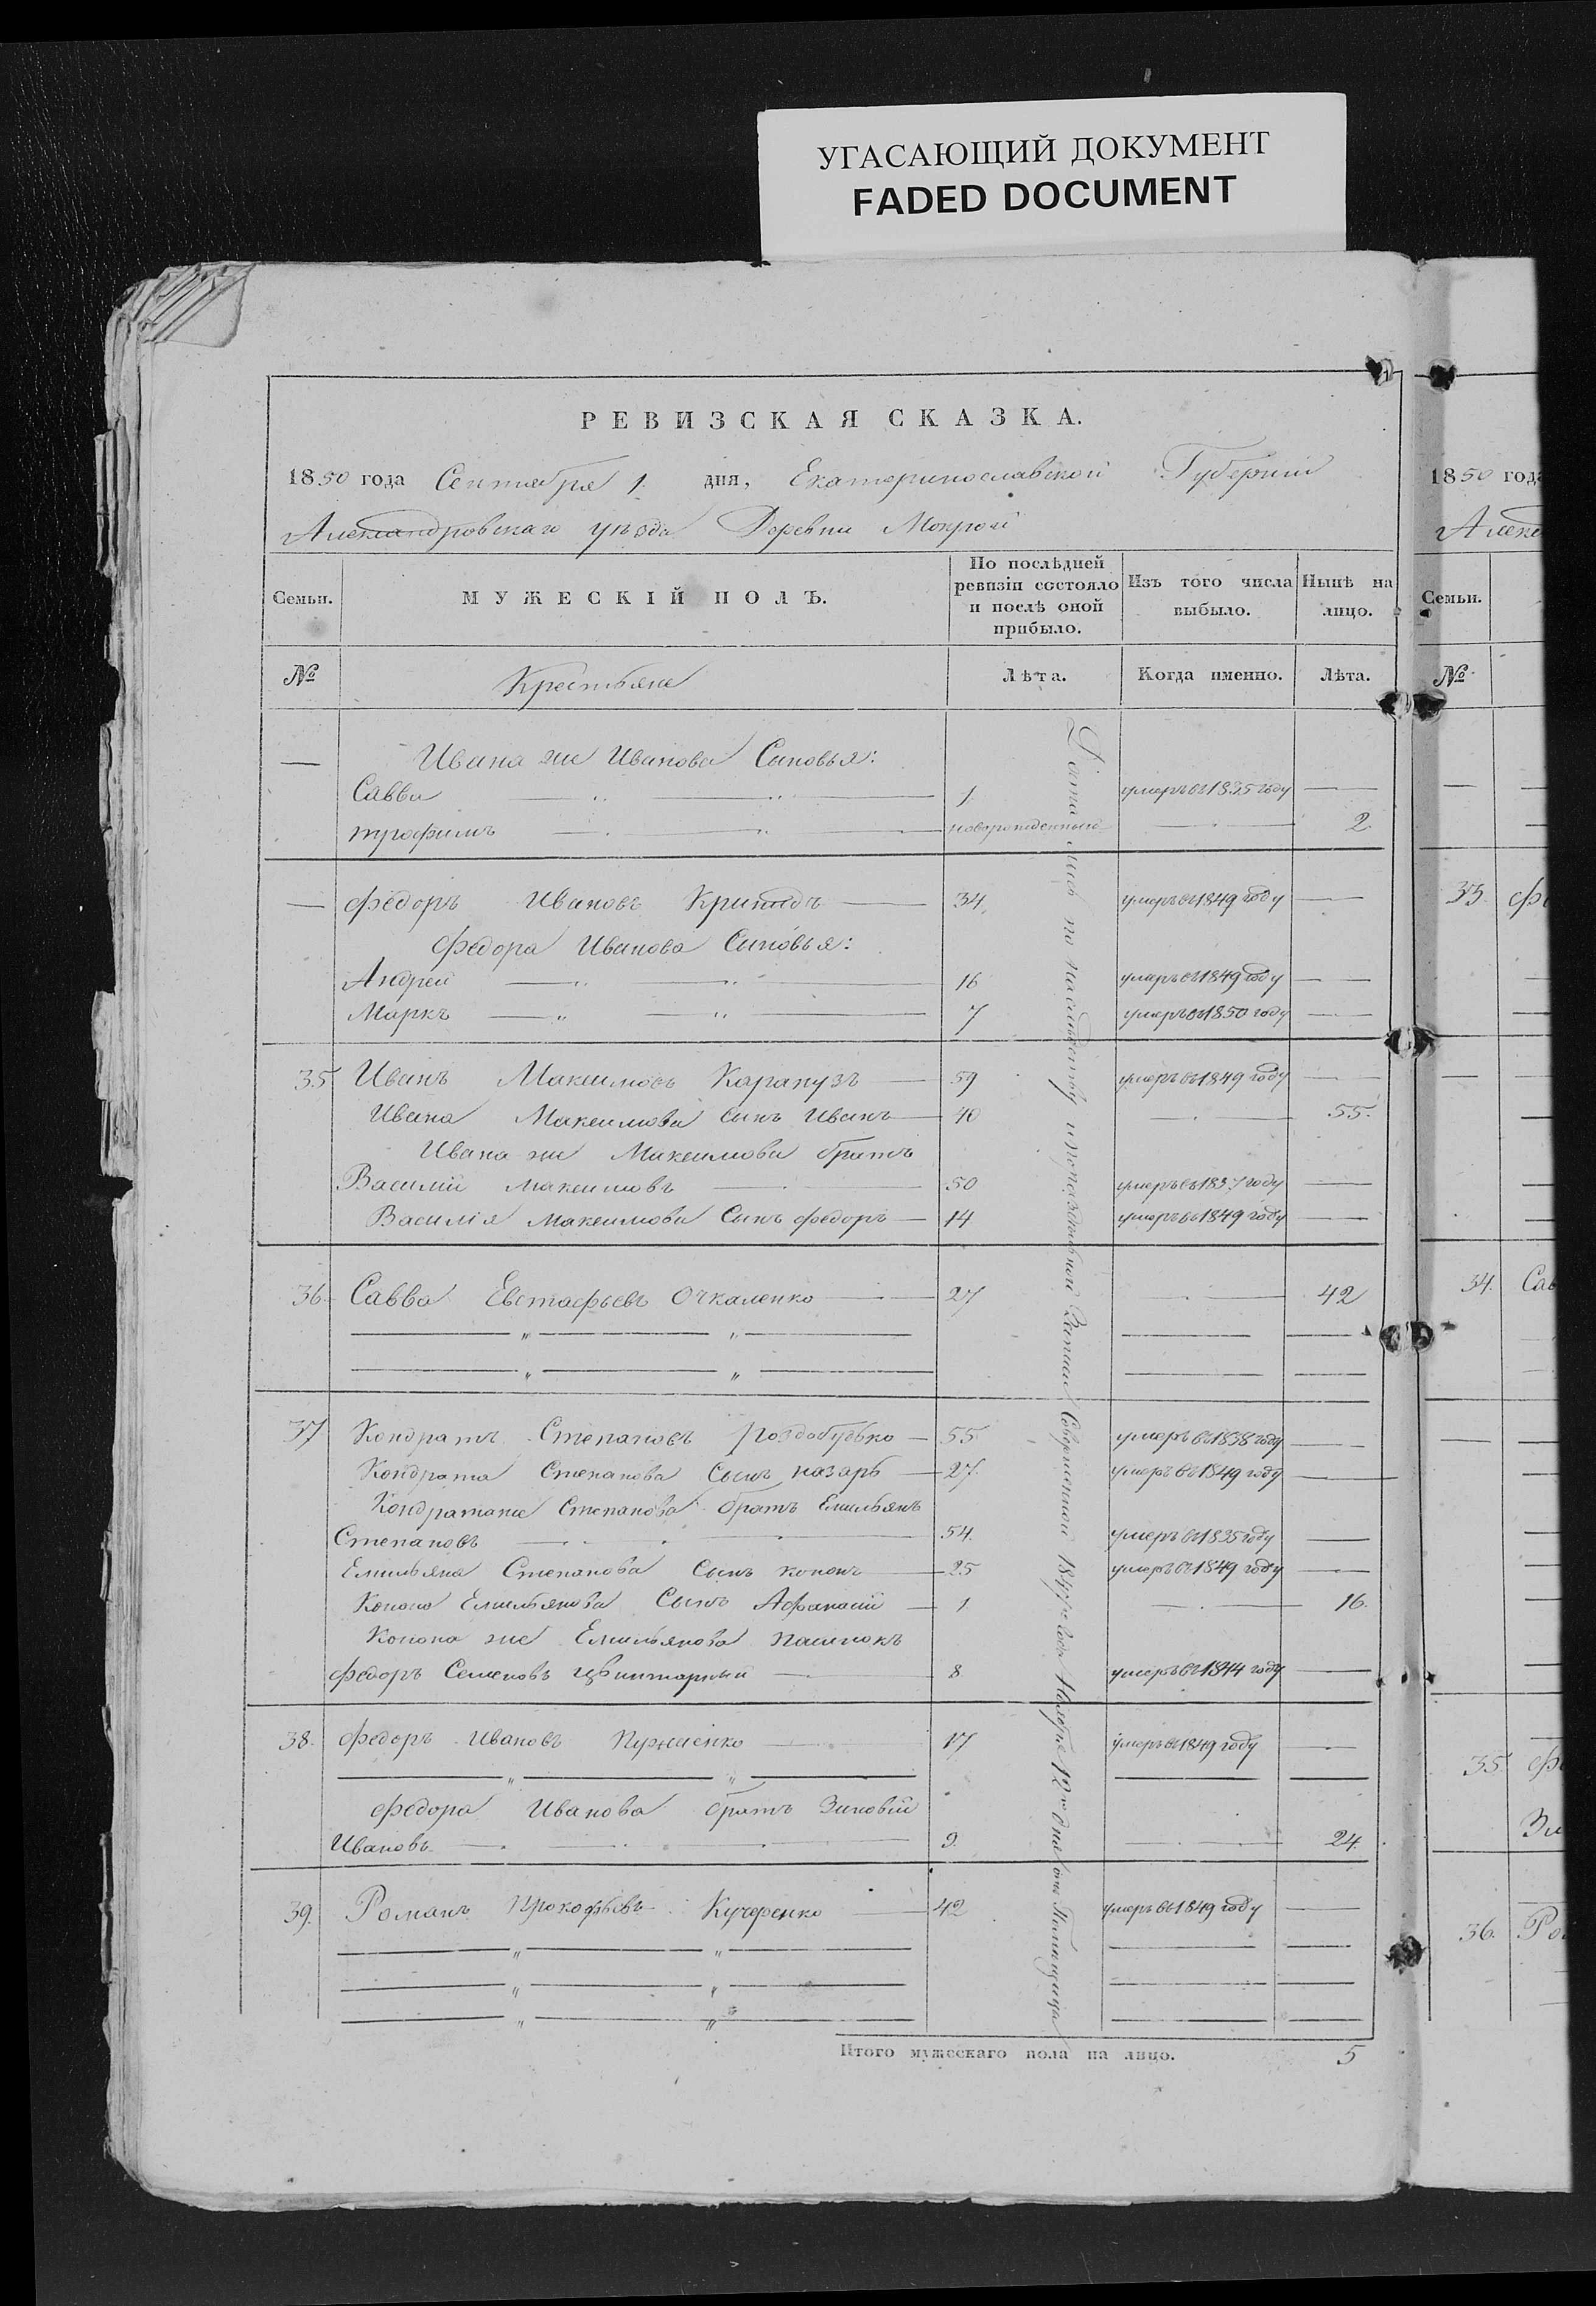 УГАСАЮЩИЙ ДОКУМЕНТ
FADED DOCUMENT
РЕВИЗСКАЯ СКАЗКА.
1850 года Сентября 1. дня, Екатеринославской Губернии
Александровскаго уѣзда Деревни Мокрой
Семьи. МУЖЕСКІЙ ПОЛЪ. По послѣдней ревизіи состояло и послѣ оной прибыло. Изъ того числа выбыло. Нынѣ на лицо.
№ Крестьяне Лѣта. Когда именно. Лѣта.
— Ивана же Иванова Сыновья:
Савва 1. умеръ въ 1835 году —
трофимъ новорожденный — 2.
— федоръ Ивановъ 34. умеръ въ 1849 году —
Федора Иванова Сыновья:
Андрей 16 умеръ въ 1849 году —
Маркъ 7 умеръ въ 1850 году —
35 Иванъ Максимовъ Карапузъ 59 умеръ въ 1849 году —
Ивана Максимова сынъ Иванъ 40 — 55.
Ивана же Максимова братъ
Василий Максимовъ 50 умеръ въ 1837 году —
Василія Максимова Сынъ федоръ 14 умеръ въ 1849 году —
36. Савва Евстафьевъ Очкаленко 27 — 42
37 Кондратъ Степановъ роздобудько 55 умеръ въ 1838 году —
Кондрата Степанова Сынъ назаръ 27. умеръ въ 1849 году —
Кондрата же Степанова братъ Емильянъ
Степановъ 54. умеръ въ 1835 году —
Емильяна Степанова Сынъ кононъ 25 умеръ въ 1849 году —
Конона Емильянова Сынъ Афанасий 1 — 16.
Конона же Емильянова пасинокъ
федоръ Семеновъ цвинтарный 8 умеръ въ 1844 году —
38. Федоръ Ивановъ 17 умеръ въ 1849 году —
Федора Иванова братъ Зиновий
Ивановъ 9. — 24.
39. Романъ Прокофьевъ Кучеренко 42 умеръ въ 1849 году —
Итого мужескаго пола на лицо. 5
по наслѣдству Записи Совершенной Ноября 12го дня отъ Помѣщица
1850 года
Алекс
Семьи.
№
33. Ф
34. Сав
35. Ф
Зи
36. Ро